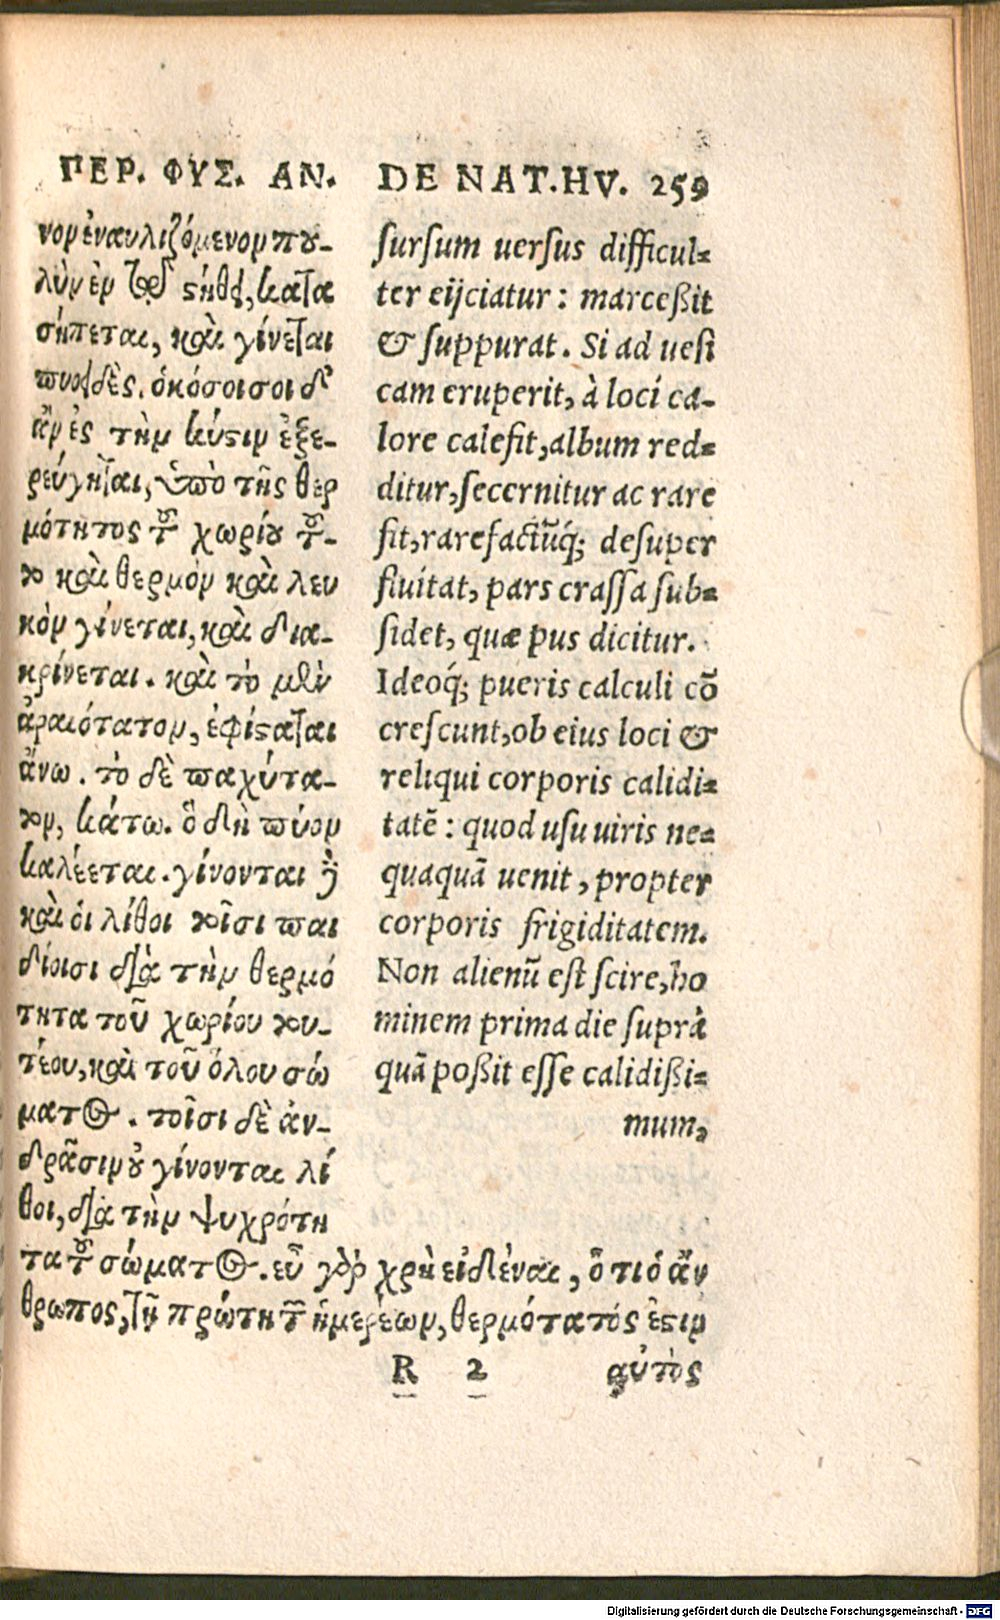 ΠΕΡ. ΦΥΣ. ΑΝ.
νον ἐναυλιζόμενον που-
λὺν ἐν τῷ στήθει, κατα
σήπεται, καὶ γίνεται
πυοειδές. ὁκόσοισι δ'
ἂν ἐς τὴν κύστιν ἐξε-
ρεύγηται, ὑπὸ τῆς θερ
μότητος τοῦ χωρίου τού-
του καὶ θερμὸν καὶ λευ
κὸν γίνεται, καὶ δια-
κρίνεται. καὶ τὸ μὲν
ἀραιότατον, ἐφίσταται
ἄνω. τὸ δὲ παχύτα-
τον, κάτω. ὃ δὴ πύον
καλέεται. γίνονται δὲ
καὶ οἱ λίθοι τοῖσι παι
δίοισι διὰ τὴν θερμό
τητα τοῦ χωρίου του-
τέου, καὶ τοῦ ὅλου σώ
ματος. τοῖσι δὲ ἀν-
δράσιν οὐ γίνονται λί
θοι, διὰ τὴν ψυχρότη
τα τοῦ σώματος. εὖ γὰρ χρὴ εἰδέναι, ὅτι ὁ ἄν
θρωπος, τῇ πρώτῃ τῶν ἡμερέων, θερμότατός ἐστιν
DE NAT.HV. 259
sursum uersus difficul-
ter eijciatur: marceßit
& suppurat. Si ad uesi
cam eruperit, à loci ca-
lore calefit, album red-
ditur, secernitur ac rare
fit, rarefactũq́; desuper
fluitat, pars crassa sub-
sidet, quæ pus dicitur.
Ideoq́; pueris calculi cõ
crescunt, ob eius loci &
reliqui corporis calidi-
tatẽ: quod usu uiris ne-
quaquã uenit, propter
corporis frigiditatem.
Non alienũ est scire, ho
minem prima die suprà
quã poßit esse calidißi-
mum,
R 2 αὐτὸς
Digitalisierung gefördert durch die Deutsche Forschungsgemeinschaft - DFG